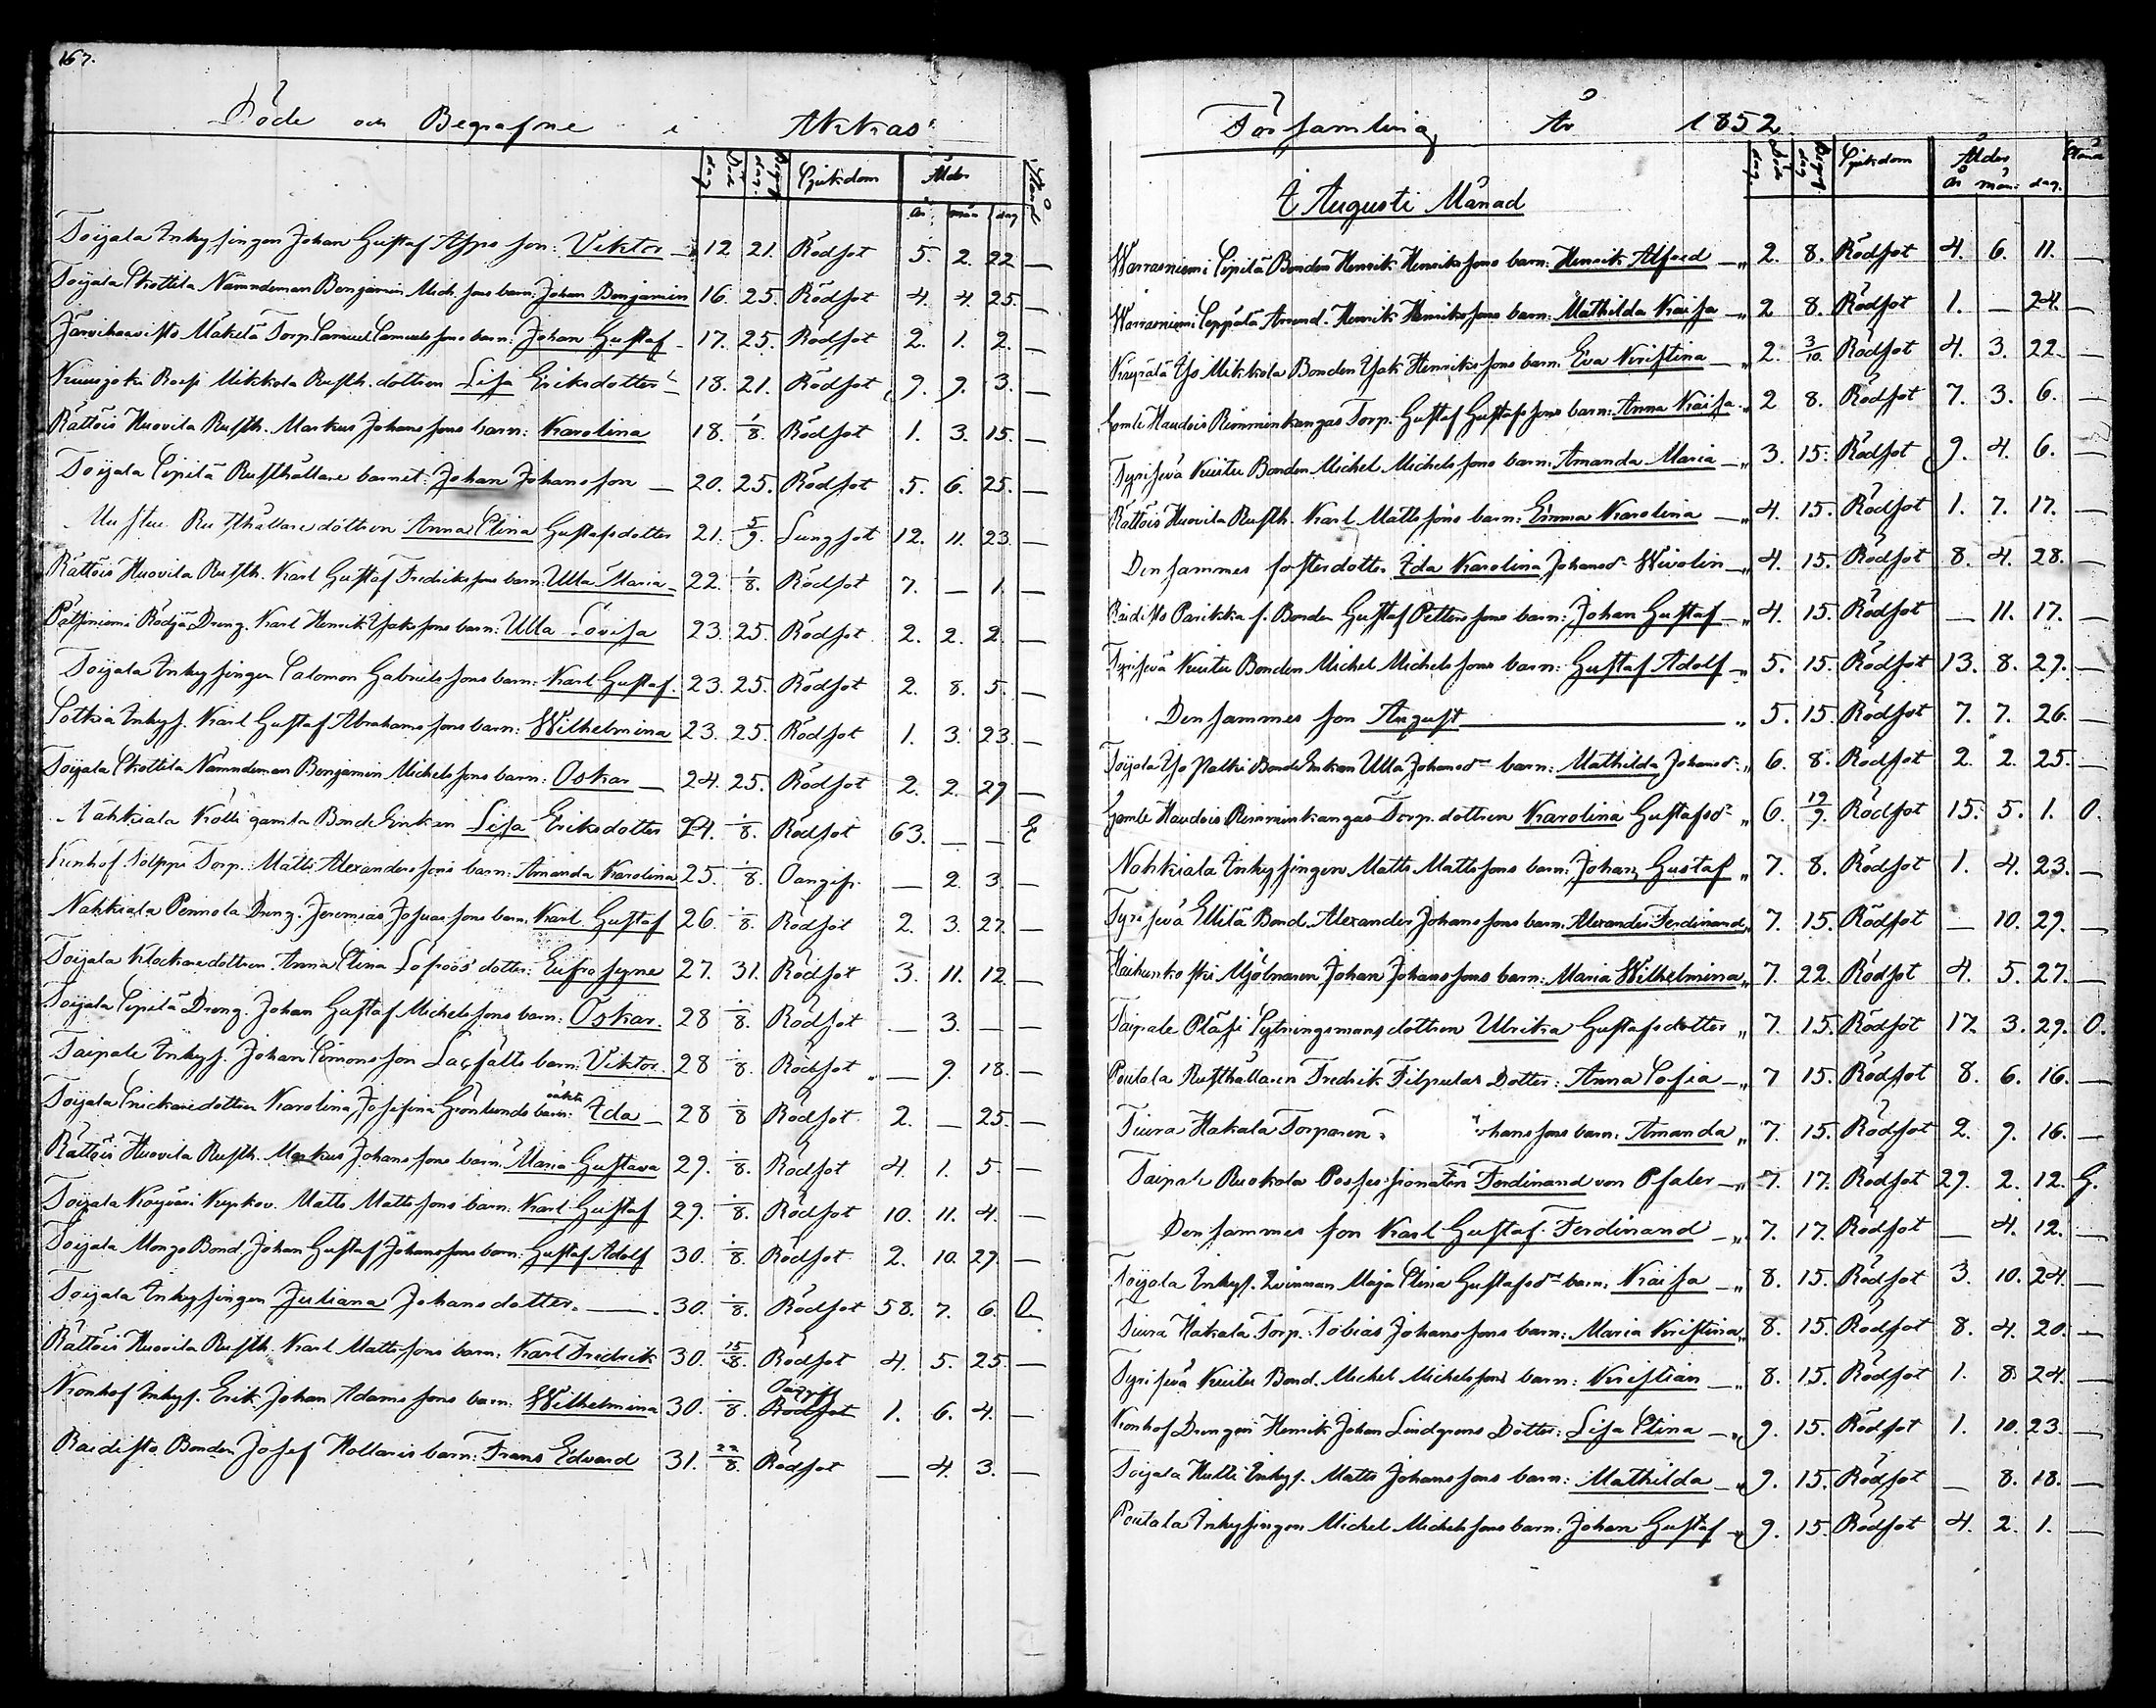 167.
Döde och Begrafne i Akkas
Död dag Begrf. dag. Sjukdom Ålder Stånd
år mån dag
Toijala Inhysingen Johan Gustaf son: Viktor 12 21. Rödsot 5. 2. 22 —
Toijala Skottila Nämndeman Benjamin Mich. sons barn: Johan Benjamin 16. 25. Rödsot 4. 4. 25. —
Mäkelä Torp. Samuel Samuels sons barn: Johan Gustaf 17. 25. Rödsot 2. 1. 2. —
Mikkola Rusth. dottren Lisa Eriksdotter 18. 21. Rödsot 9. 9. 3. —
Rättöis Huovila Rusth. Markus Johans sons barn: Karolina 18. 1/8. Rödsot 1. 3. 15. —
Toijala Sipilä Rusthållare barnet: Johan Johansson — 20. 25. Rödsot 5. 6. 25. —
Rusthållare dottren Anna Stina Gustafsdotter 21. 5/9. Lungsot 12. 11. 23. —
Rättöis Huovila Rusth. Karl Gustaf Fredriks sons barn: Ulla Maria 22. 1/8. Rödsot 7. — 1. —
Dreng. Karl Henrik Isaks sons barn: Ulla Lovisa 23. 25. Rödsot 2. 2. 2. —
Toijala Inhysingen Salomon Gabriels sons barn: Karl Gustaf. 23. 25. Rödsot 2. 8. 5. —
Sotkia Inhys. Karl Gustaf Abrahams sons barn: Wilhelmina 23. 25. Rödsot 1. 3. 23. —
Toijala Skottila Nämndeman Benjamin Michels sons barn: Oskar — 24. 25. Rödsot 2. 2. 29 —
Nahkiala Kölli gamla Bond Enkan Lisa Eriksdotter 24. 1/8. Rödsot 63. — — E
Torp. Matts Alexanders sons barn: Amanda Karolina 25. 1/8. Oangif. — 2. 3. —
Nahkiala Pennola Dreng. Jeremias Josuas sons barn: Karl Gustaf 26. 1/8. Rödsot 2. 3. 27. —
Toijala Klockaredottren Anna Stina Lofroos' dotter: Eufrosyne 27. 31. Rödsot 3. 11. 12. —
Toijala Sipilä Dreng. Johan Gustaf Michels sons barn: Oskar. 28 1/8. Rödsot — 3. — —
Taipale Inhys. Johan Simonsson barn: Viktor. 28 1/8. Rödsot — 9. 18. —
Toijala Snickaredottren Karolina Josefina Gronlunds oäkta barn: Ida — 28 1/8 Rödsot 2. — 25. —
Rättöis Huovila Rusth. Markus Johans sons barn: Maria Gustava 29. 1/8. Rödsot 4. 1. 5. —
Toijala Matts Matts sons barn: Karl Gustaf 29. 1/8. Rödsot 10. 11. 4. —
Toijala Monzo Bond. Johan Gustaf Johans sons barn: Gustaf Adolf 30. 1/8. Rödsot 2. 10. 29. —
Toijala Inhysingen Juliana Johansdotter. — 30. 1/8. Rödsot 58. 7. 6. O
Rättöis Huovila Rusth. Karl Matts sons barn: Karl Fredrik 30. 15/8. Rödsot 4. 5. 25. —
Kronhof Inhys. Erik Johan Adams sons barn: Wilhelmina 30. 1/8. Oangif. Rödsot 1. 6. 4. —
Bonden Josef barn: Frans Edvard 31. 22/8. Rödsot — 4. 3. —
Församling År 1852
Död dag. Begrf. dag Sjukdom Ålder Stånd
år mån: dag.
I Augusti Månad
Warrasniemi Sipilä Bonden Henrik Henriks sons barn: Henrik Alfred —" 2. 8. Rödsot 4. 6. 11. —
Warrasniemi Seppälä Arrend. Henrik Henriks sons barn: Mathilda Kaisa —" 2 8. Rödsot 1. — 24. —
Mikkola Bonden Isak Henriks sons barn: Eva Kristina —" 2. 3/10. Rödsot 4. 3. 22. —
Gamle Haudois Rimminkangas Torp. Gustaf Gustafs sons barn: Anna Kaisa " 2 8. Rödsot 7. 3. 6. —
Kuitu Bonden Michel Michels sons barn: Amanda Maria —" 3. 15. Rödsot 9. 4. 6. —
Rättöis Huovila Rusth. Karl Matts sons barn: Emma Karolina —" 4. 15. Rödsot 1. 7. 17. —
Den sammes fosterdotter Ida Karolina Johansdr Wivolin —" 4. 15. Rödsot 8. 4. 28. —
Parikka f. Bonden Gustaf Petters sons barn: Johan Gustaf —" 4. 15. Rödsot — 11. 17. —
Kuitu Bonden Michel Michels sons barn: Gustaf Adolf —" 5. 15. Rödsot 13. 8. 29. —
Den sammes son August — " 5. 15. Rödsot 7. 7. 26. —
Toijala Bond Enkan Ulla Johansdr barn: Mathilda Johansdr " 6. 8. Rödsot 2. 2. 25. —
Gamle Haudois Rimminkangas Torp. dottren Karolina Gustafsdr " 6. 19/9. Rödsot 15. 5. 1. O.
Nahkiala Inhysingen Matts Matts sons barn: Johan Gustaf " 7. 8. Rödsot 1. 4. 23. —
Ellilä Bond. Alexander Johans sons barn: Alexander Ferdinand " 7. 15. Rödsot — 10. 29. —
Mjölnaren Johan Johans sons barn: Maria Wilhelmina " 7. 22. Rödsot 4. 5. 27. —
Taipale dottren Ulrika Gustafsdotter " 7. 15. Rödsot 17. 3. 29. O.
Poutala Rusthållaren Fredrik Filpulas Dotter: Anna Sofia —" 7 15. Rödsot 8. 6. 16. —
Tiura Hakala Torparen hans sons barn: Amanda " 7. 15. Rödsot 2. 9. 16. —
Taipale Ruokola Possessionaten Ferdinand von Pfaler —" 7. 17. Rödsot 29. 2. 12. G.
Den sammes son Karl Gustaf Ferdinand —" 7. 17. Rödsot — 4. 12. —
Toijala Inhys. Qvinnan Maja Stina Gustafsdr barn: Kaisa —" 8. 15. Rödsot 3. 10. 24. —
Tiura Hakala Torp. Tobias Johans sons barn: Maria Kristina " 8. 15. Rödsot 8. 4. 20. —
Kuitu Bond. Michel Michels sons barn: Kristian —" 8. 15. Rödsot 1. 8. 24. —
Kronhof Drengen Henrik Johan Lindgrens Dotter: Lisa Stina —" 9. 15. Rödsot 1. 10. 23. —
Toijala Hulli Inhys. Matts Johans sons barn: Mathilda —" 9. 15. Rödsot — 8. 18. —
Poutala Inhysingen Michel Michels sons barn: Johan Gustaf —" 9. 15. Rödsot 4. 2. 1. —